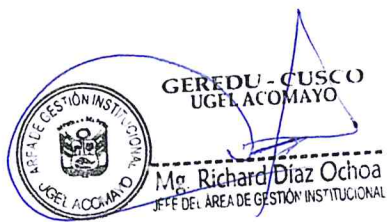 GEREDU - CUSCO
UGEL ACOMAYO
ÁREA DE GESTIÓN INSTITUCIONAL
UGEL ACOMAYO
Mg. Richard Díaz Ochoa
JEFE DEL ÁREA DE GESTIÓN INSTITUCIONAL